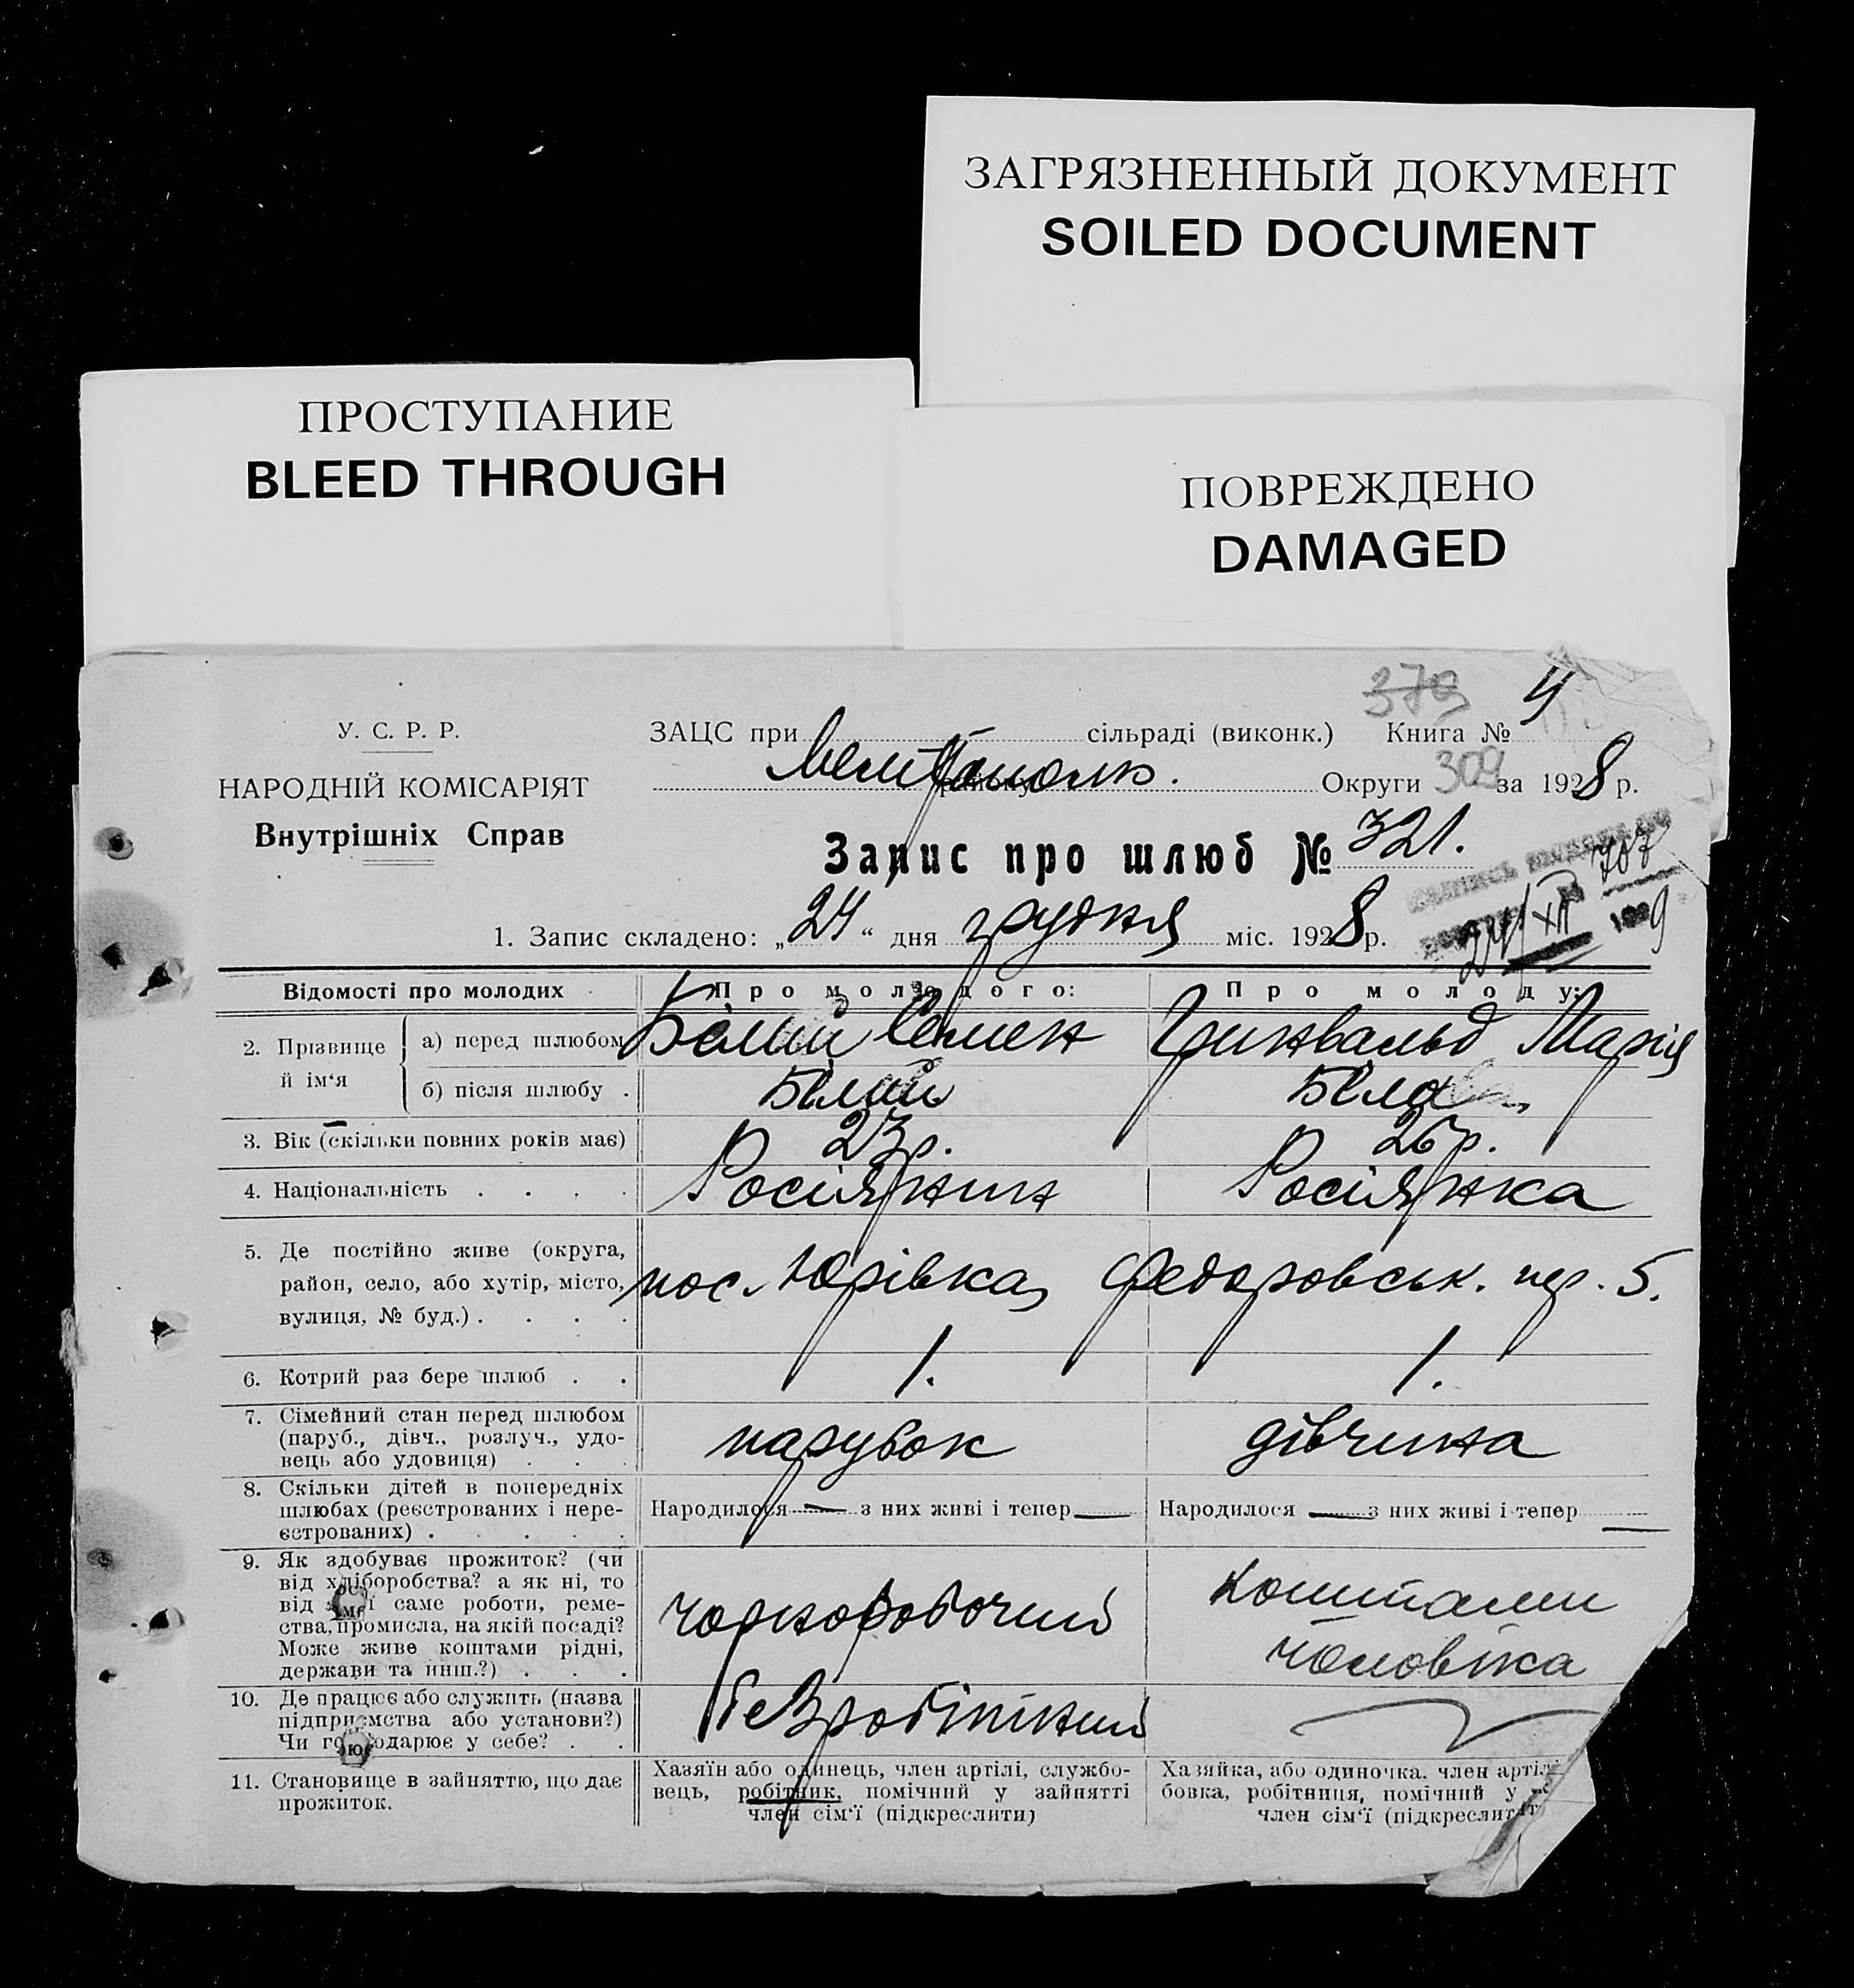 ЗАГРЯЗНЕННЫЙ ДОКУМЕНТ
SOILED DOCUMENT
ПРОСТУПАНИЕ
BLEED THROUGH
ПОВРЕЖДЕНО
DAMAGED
379 4
У. С. Р. Р.
ЗАЦС при сільраді (виконк.) Книга №
НАРОДНІЙ КОМІСАРІЯТ
Внутрішніх Справ
району Округи 309 за 1928 р.
Запис про шлюб № 321.
707
1. Запис складено: „24“ дня грудня міс. 1928 р.
24/XII 1929
Відомості про молодих
Про молодого:
Про молоду:
2. Прізвище й ім‘я
а) перед шлюбом Білий Семен Гринвальд Марія
б) після шлюбу . Білий Біла
3. Вік (скільки повних років має) 23 р. 26 р.
4. Національність . . . . Росіянин Росіянка
5. Де постійно живе (округа,
район, село, або хутір, місто,
вулиця, № буд.) . . . .
пос. Юрівка, Федоровськ. пер. 5.
6. Котрий раз бере шлюб . . 1. 1.
7. Сімейний стан перед шлюбом
(паруб., дівч., розлуч., удо-
вець або удовиця) . . .
парубок дівчина
8. Скільки дітей в попередніх
шлюбах (реєстрованих і нере-
єстрованих) . . . . .
Народилося — з них живі і тепер —
Народилося — з них живі і тепер —
9. Як здобуває прожиток? (чи
від хліборобства? а як ні, то
від саме роботи, реме-
ства, промисла, на якій посаді?
Може живе коштами рідні,
держави та инш.?) . . .
чорноробочий
коштами
чоловіка
10. Де працює або служить (назва
підприємства або установи?)
Чи господарює у себе? . .
безробітний
11. Становище в зайняттю, що дає
прожиток.
Хазяїн або одинець, член артілі, службо-
вець, робітник, помічний у зайнятті
член сім‘ї (підкреслити)
Хазяйка, або одиночка, член артілі
бовка, робітниця, помічний у
член сім‘ї (підкреслити